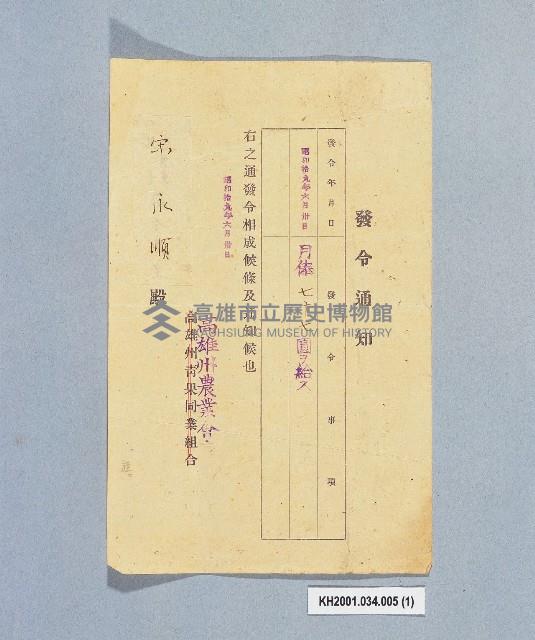 發令通知
發令年月日
發令事項
昭和拾九年六月卅日
月俸七十七圓ヲ給ス
右之通發令相成候條及通知候也
昭和拾九年六月卅日
高雄州農業會
高雄州青果同業組合
宋永順殿
高雄市立歷史博物館
KAOHSIUNG MUSEUM OF HISTORY
KH2001.034.005 (1)